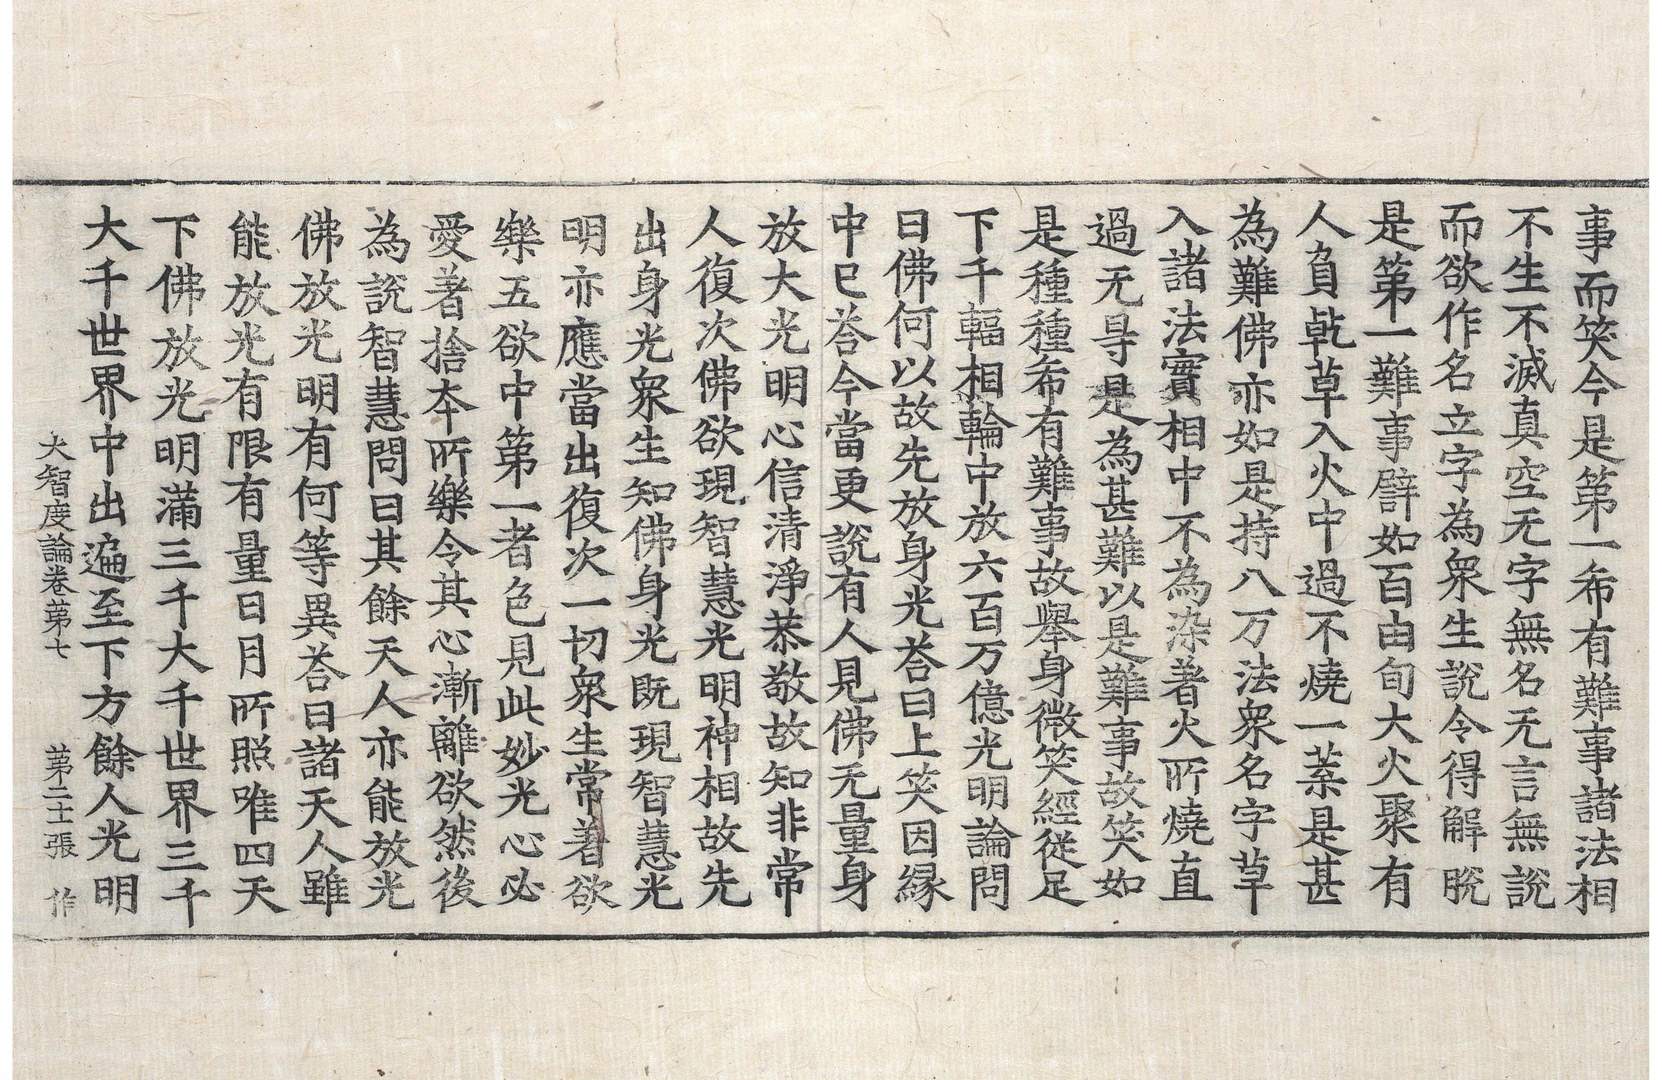 事而笑今是第一希有難事諸法相
不生不滅真空无字無名无言無說
而欲作名立字為衆生說令得解脫
是第一難事譬如百由旬大火聚有
人負乹草入火中過不燒一葉是甚
為難佛亦如是持八万法衆名字草
入諸法實相中不為染著火所燒直
過无㝵是為甚難以是難事故笑如
是種種希有難事故舉身微笑經從足
下千輻相輪中放六百万億光明論問
曰佛何以故先放身光荅曰上笑因緣
中已荅今當更說有人見佛无量身
放大光明心信清淨恭敬故知非常
人復次佛欲現智慧光明神相故先
出身光衆生知佛身光既現智慧光
明亦應當出復次一切衆生常著欲
樂五欲中第一者色見此妙光心必
愛著捨夲所樂令其心漸離欲然後
為說智慧問曰其餘天人亦能放光
佛放光明有何等異荅曰諸天人雖
能放光有限有量日月所照唯四天
下佛放光明滿三千大千世界三千
大千世界中出遍至下方餘人光明
大智度論卷苐七 苐二十張 作